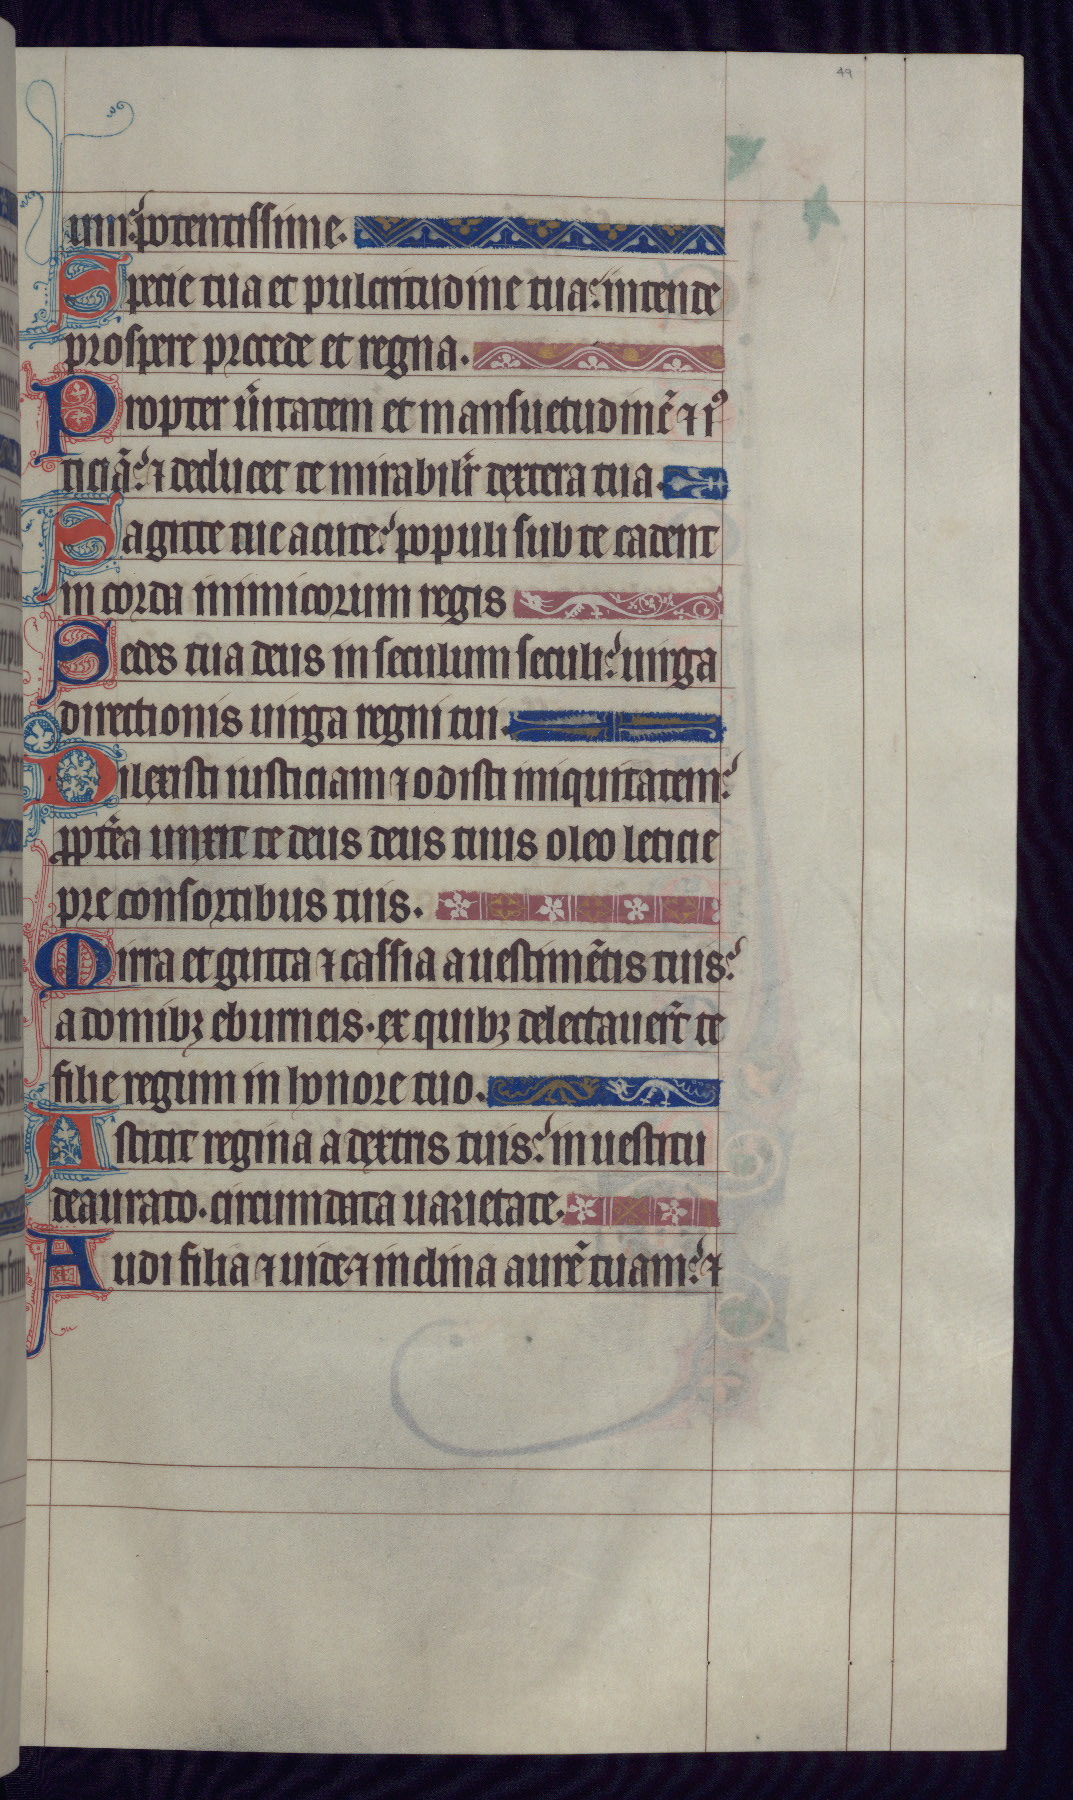 49
um: potentissime.
Specie tua et pulcritudine tua: intende
prospere procede et regna.
Propter ũitatem et mansuetudinẽ ⁊ iꝰ
ticiã: ⁊ deducet te mirabilr̃ dextera tua.
Sagitte tue acute: populi sub te cadent
in corda inimicorum regis
Sedes tua deus in seculum seculi: uirga
directionis uirga regni tui.
Dilexisti iusticiam ⁊ odisti iniquitatem:
ꝓpt̃ea unxit te deus deus tuus oleo leticie
pre consortibus tuis.
Mirra et gutta ⁊ cassia a uestimẽtis tuis:
a domibꝫ eburneis. ex quibꝫ delectauer̃t te
filie regum in honore tuo.
Astitit regina a dextris tuis: in uestitu
deaurato. circumdata uarietate.
Audi filia ⁊ uide. ⁊ inclina aurẽ tuam: ⁊